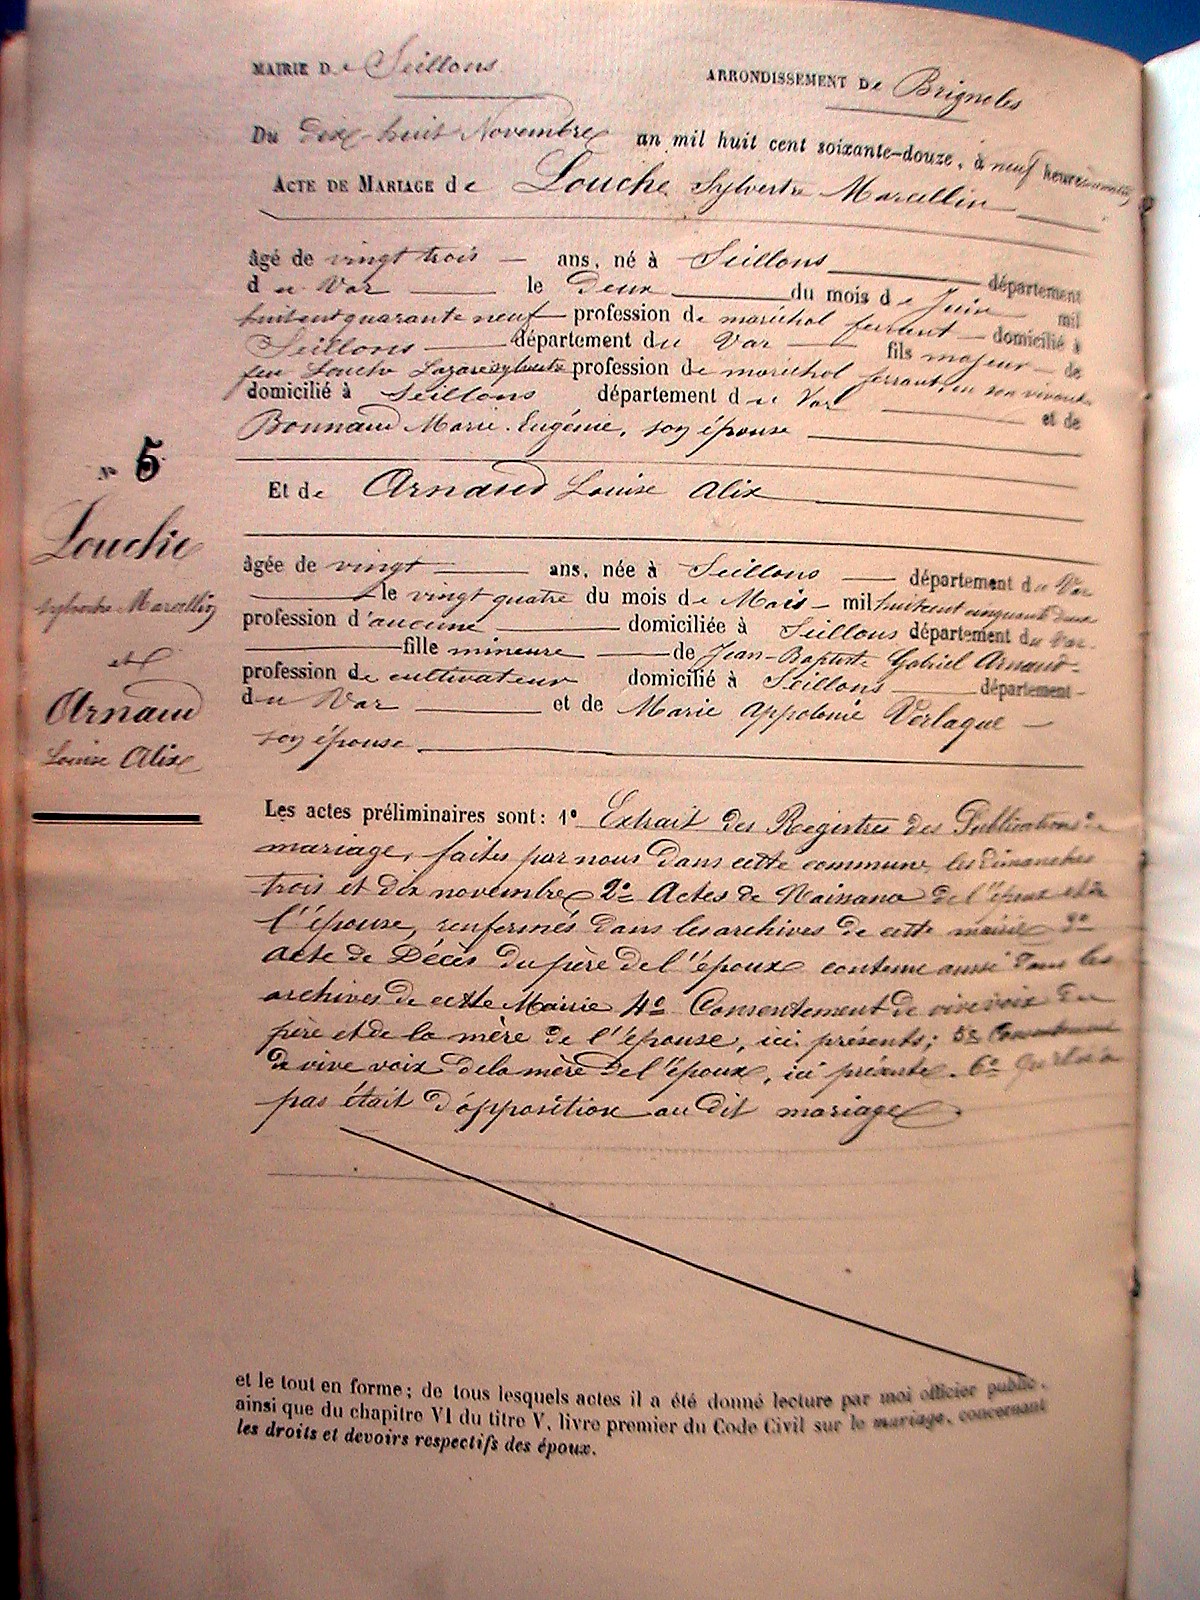 MAIRIE De Seillons
ARRONDISSEMENT De Brignoles
Du dix-huit Novembre an mil huit cent soixante-douze, à neuf heures
ACTE DE MARIAGE de Louche Sylvestre Marcellin
âgé de vingt trois ans, né à Seillons département
du Var le Deux du mois de Juin mil
huit cent quarante neuf profession de maréchal ferrant domicilié à
Seillons département du Var fils majeur de
feu Louche Lazare sylvestre profession de maréchal ferrant, en son vivant
domicilié à Seillons département du Var et de
Bonnaud Marie Eugénie, son épouse
N° 5
Louche
Sylvestre Marcellin
et
Arnaud
Louise Alix
Et de Arnaud Louise Alix
âgée de vingt ans, née à Seillons département du Var
le vingt quatre du mois de Mars mil huit cent cinquante deux
profession d'aucune domiciliée à Seillons département du Var
fille mineure de Jean-Baptiste Gabriel Arnaud
profession de cultivateur domicilié à Seillons département
du Var et de Marie Appolonie Verlaque
son épouse
Les actes préliminaires sont: 1° Extrait des Registres des Publications de
mariage, faites par nous dans cette commune, les dimanches
trois et dix novembre 2° Actes de Naissance de l'époux et de
l'épouse, renfermés dans les archives de cette mairie 3°
acte de Décès du père de l'époux contenu aussi dans les
archives de cette Mairie 4° Consentement de vive voix du
père et de la mère de l'épouse, ici présents; 5° Consentement
de vive voix de la mère de l'époux, ici présente. 6° Qu'il n'a
pas était d'opposition au dit mariage.
et le tout en forme; de tous lesquels actes il a été donné lecture par moi officier public,
ainsi que du chapitre VI du titre V, livre premier du Code Civil sur le mariage, concernant
les droits et devoirs respectifs des époux.